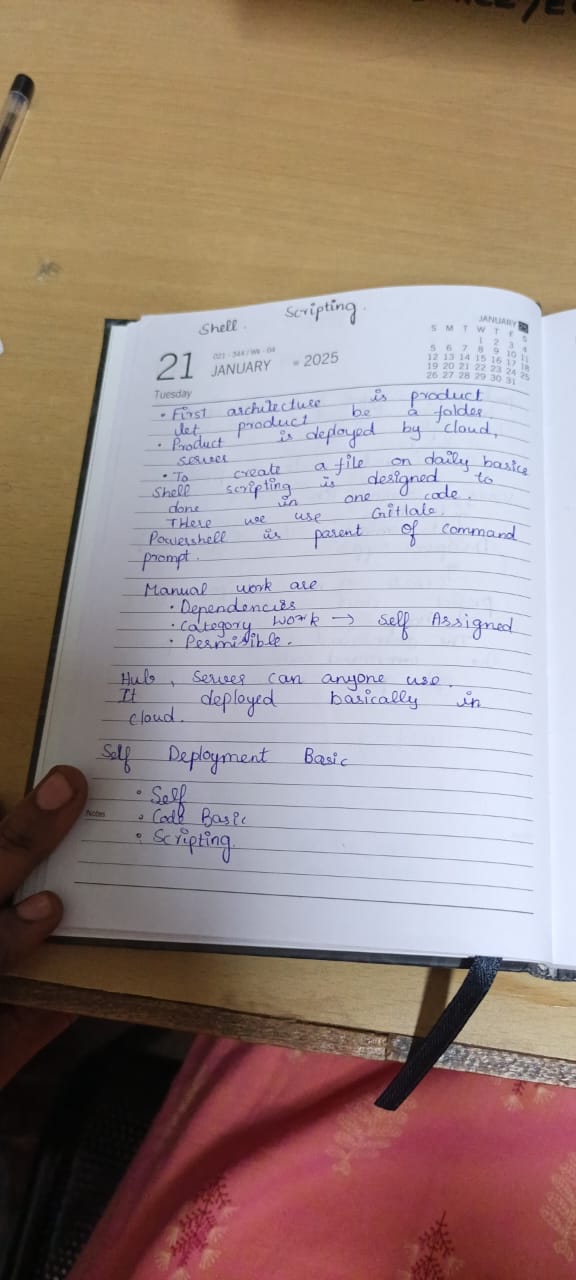 Shell Scripting.
21
021 - 344 / Wk - 04
JANUARY - 2025
Tuesday
JANUARY 25
S M T W T F S
1 2 3 4
5 6 7 8 9 10 11
12 13 14 15 16 17 18
19 20 21 22 23 24 25
26 27 28 29 30 31
• First architecture is product
Let product be a folder
• Product is deployed by cloud,
server
• To create a file on daily basice
Shell scripting is designed to
done in one code.
THere we use Gitlab.
Powershell is parent of command
prompt.
Manual work are
• Dependencies
• Category work → Self Assigned
• Permisible.
Hub, Server can anyone use.
It deployed basically in
cloud.
Self Deployment Basic
• Self
Notes
• Code Basic
• Scripting.